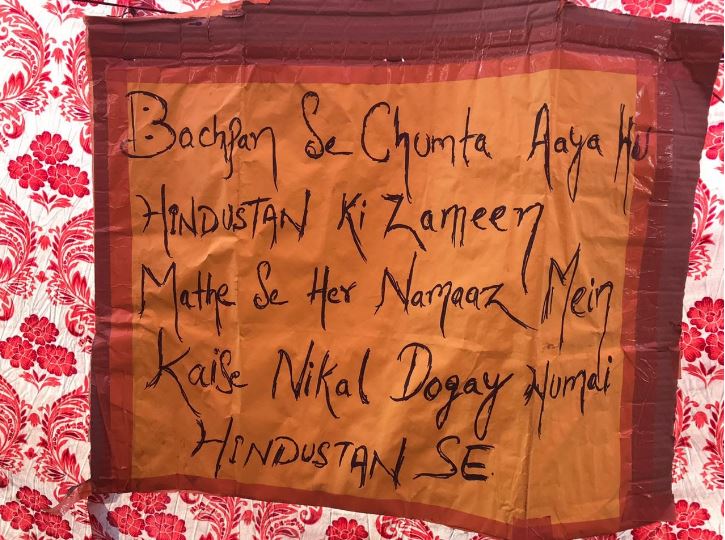 Bachpan Se Chumta Aaya Hu
HINDUSTAN Ki Zameen
Mathe Se Her Namaaz Mein
Kaise Nikal Dogay Humai
HINDUSTAN SE.